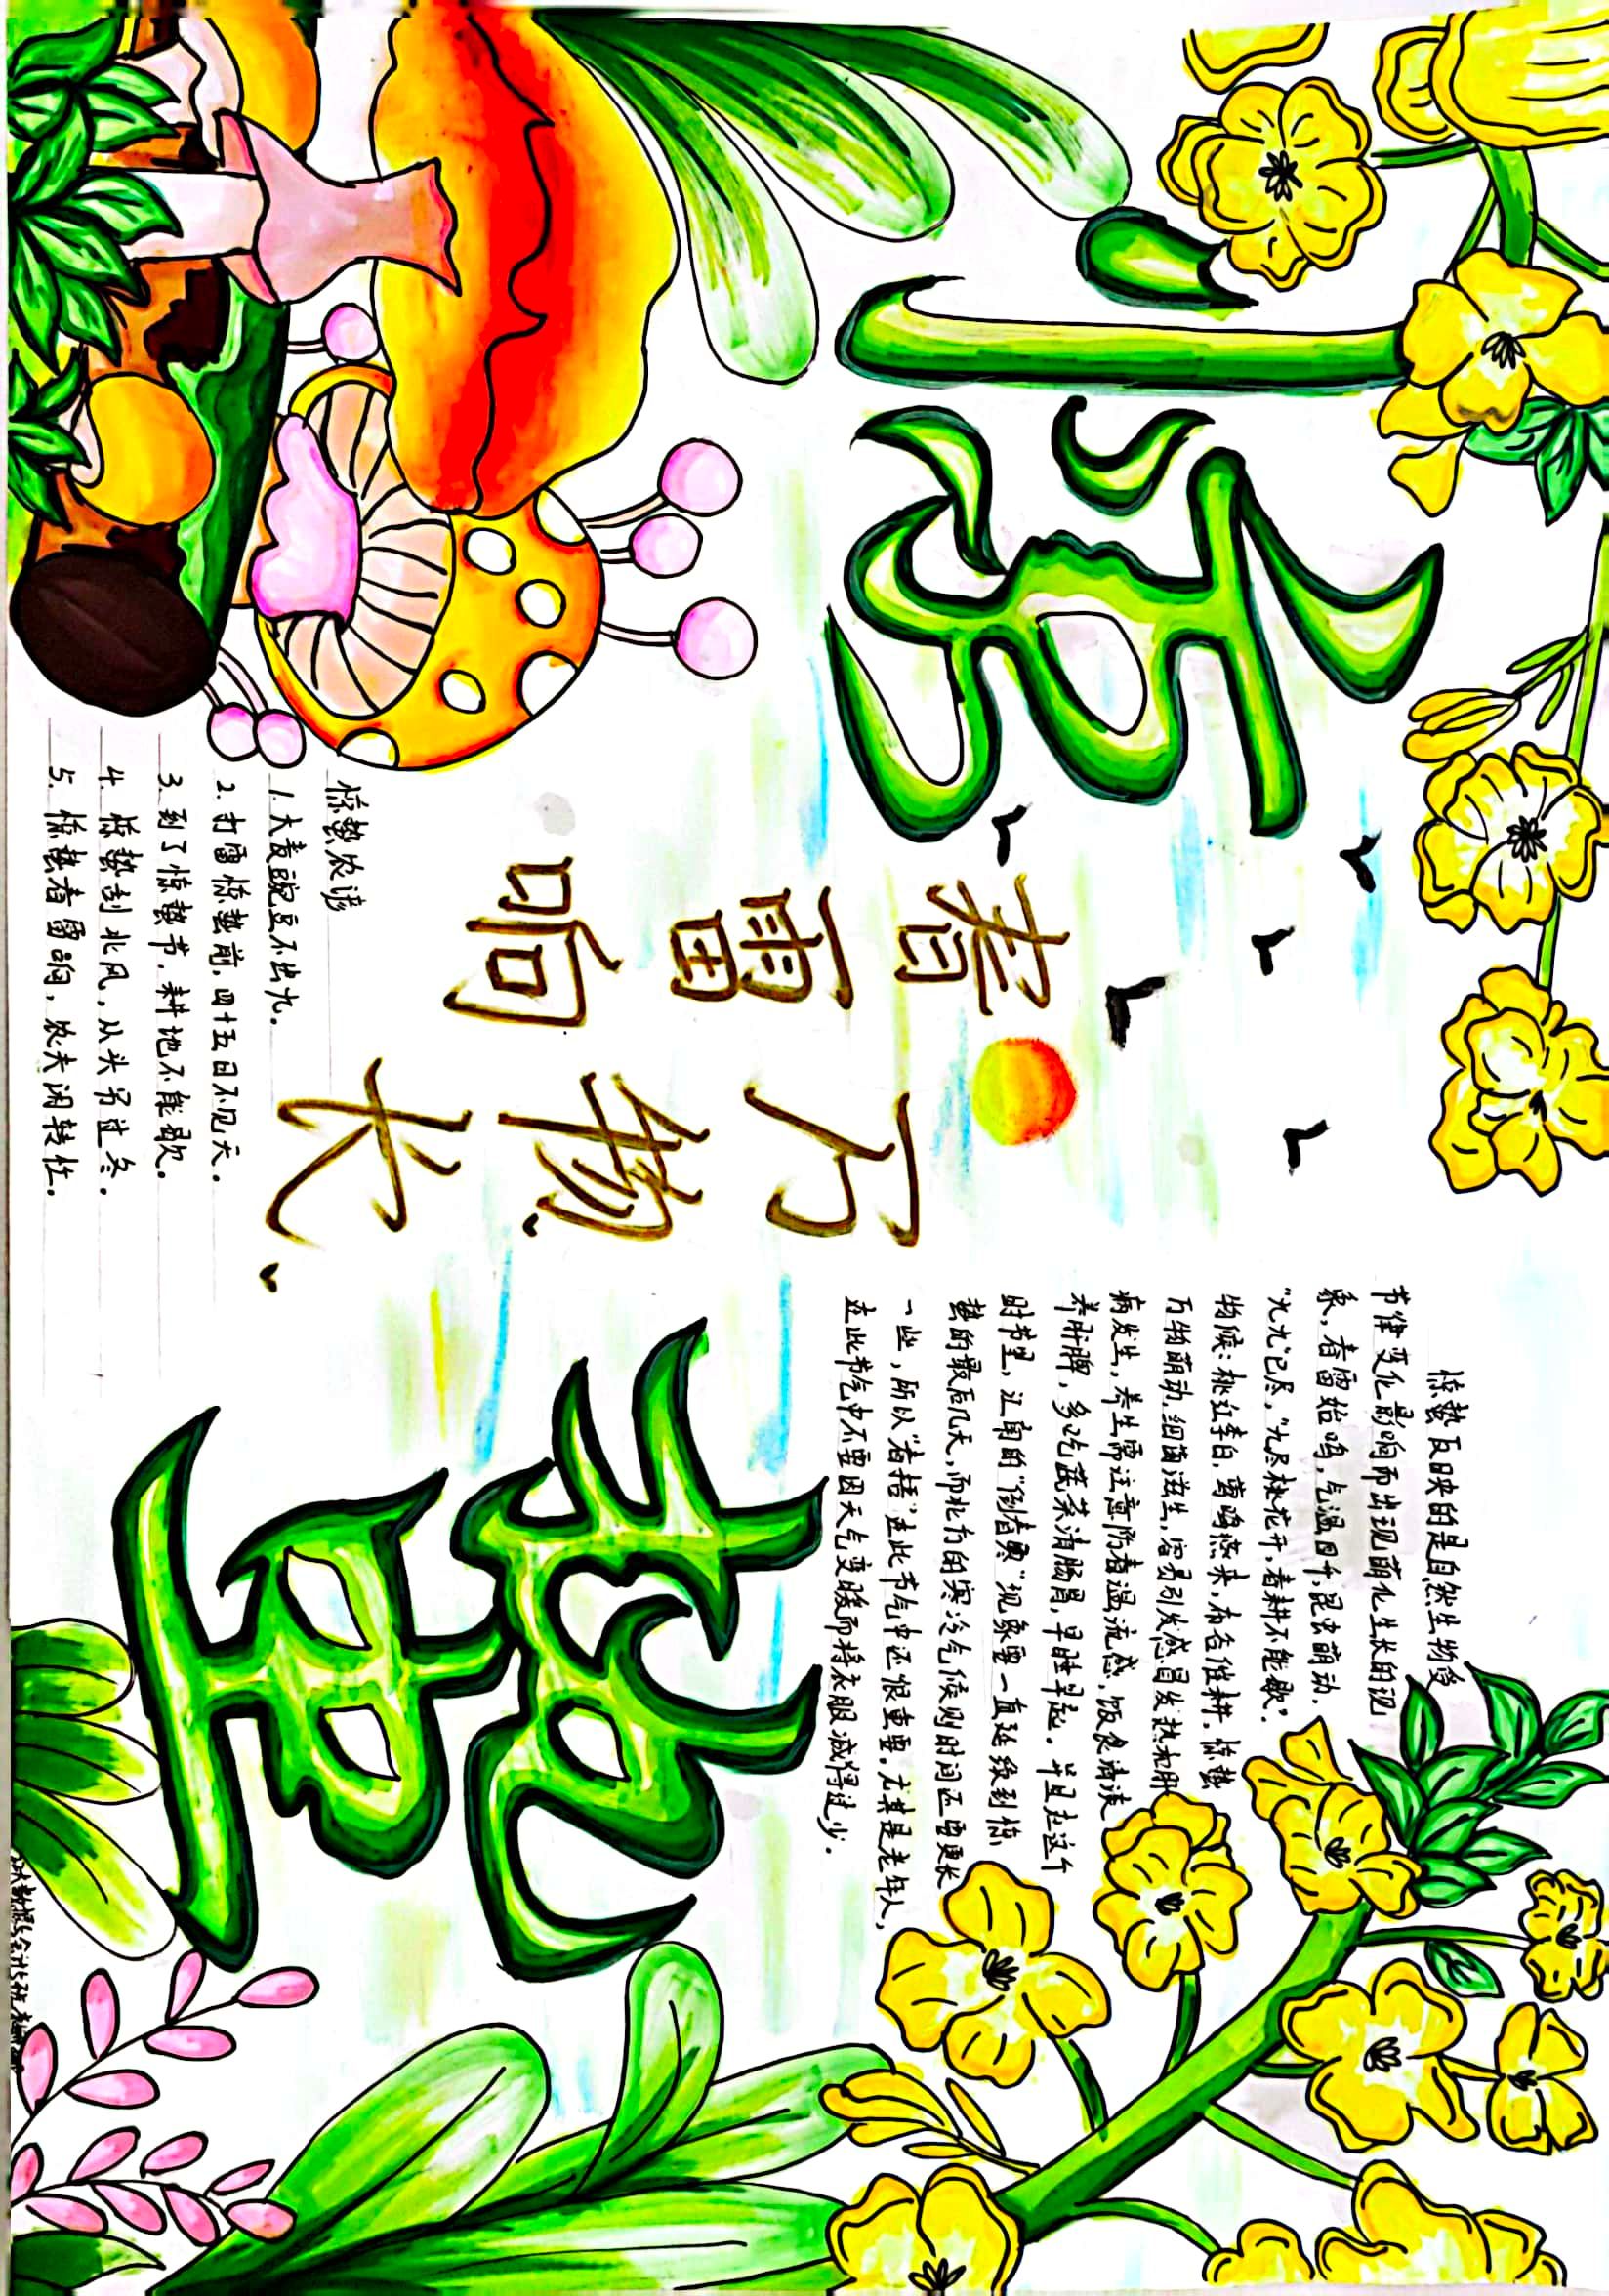 惊蛰
春雷响
万物长
惊蛰反映的是自然生物受
节律变化影响而出现萌化生长的现
象,春雷始鸣,气温回升,昆虫萌动.
"九九"已尽,"九尽桃花开,春耕不能歇".
物候:桃红李白,莺鸣燕来,布谷催耕.惊蛰
万物萌动,细菌滋生,容易引发感冒发热和肝
病发生,养生需注意防春温流感,饭食清淡
养肝脾,多吃蔬菜清肠胃,早睡早起.并且在这个
时节里,江南的"倒春寒"现象要一直延续到惊
蛰的最后几天,而北方的寒冷气候则时间还要更长
一些,所以"春捂"在此节气中还很重要,尤其是老年人,
在此节气中不要因天气变暖而将衣服减得过少.
惊蛰农谚
1.大麦豌豆不出九。
2.打雷惊蛰前,四十五日不见天。
3.到了惊蛰节,耕地不能歇。
4.惊蛰刮北风,从头另过冬。
5.惊蛰春雷响,农夫闲转忙。
22大数据与会计5班